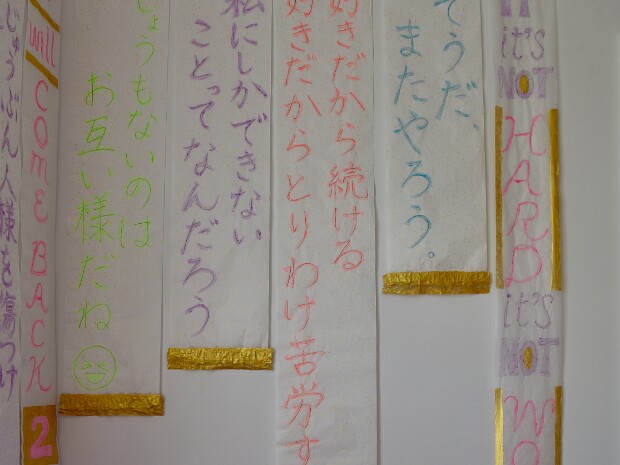 it's
NOT
HARD
it's
NOT
WO
そうだ、
またやろう。
好きだから続ける
好きだからとりわけ苦労す
私にしかできない
ことってなんだろう
しょうもないのは
お互い様だね
will
COME BACK
2
じゅうぶん人様を傷つけ